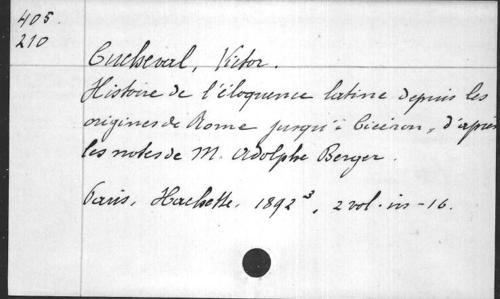 405.
210
Cucheval, Victor.
Histoire de l'éloquence latine depuis les
origines de Rome jusqu'à Cicéron, d'après
les notes de M. Adolphe Berger.
Paris, Hachette. 1892³, 2 vol. in-16.